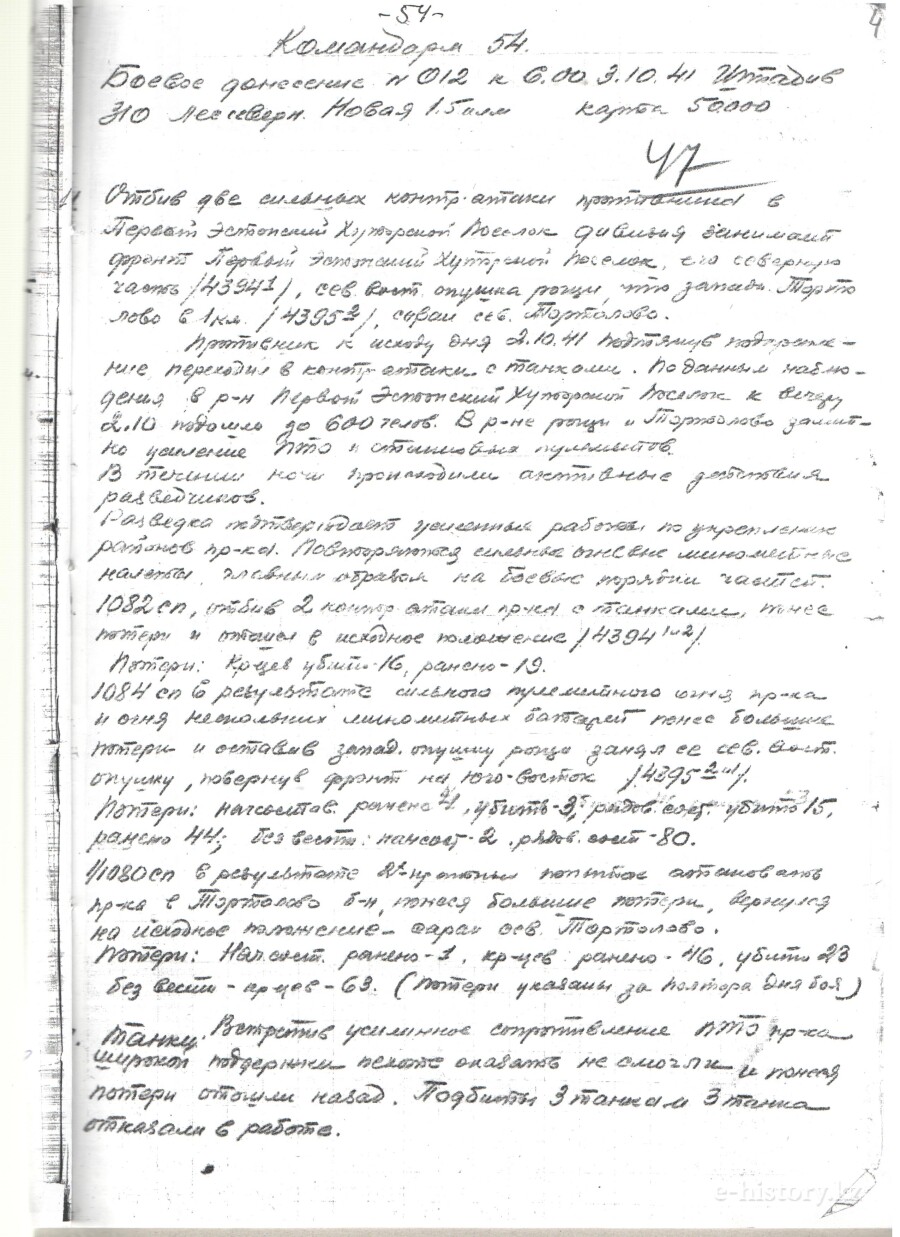 -54-
4
Командарм 54.
Боевое донесение N 012 к 6.00 3.10.41 Штадив
310 Лес севернее Новая 1.5 клм карта 50000
47
Отбив две сильных контр-атаки противника в
Первый Эстонский Хуторской Поселок дивизия занимает
фронт Первый Эстонский Хуторской Поселок, его северную
часть /4394 1/, сев. вост. опушка рощи, что запад. Торто
лово в 1 км. /4395 2/, сараи сев. Тортолово.
Противник к исходу дня 2.10.41 подтянув подкрепле-
ние, переходил в контр-атаки с танками. По данным наблю-
дения в р-н Первый Эстонский Хуторской Поселок к вечеру
2.10 подошло до 600 челов. В р-не рощи и Тортолово замет-
но усиление ПТО и станковых пулеметов.
В течении ночи происходили активные действия
разведчиков.
Разведка подтверждает усиленные работы по укреплению
районов пр-ка. Повторяются сильные огневые минометные
налеты, главным образом на боевые порядки частей.
1082 сп, отбив 2 контр атаки пр-ка с танками, понес
потери и отошел в исходное положение /4394 1 и 2/.
Потери: Кр-цев убито-16, ранено-19.
1084 сп в результате сильного пулеметного огня пр-ка
и огня нескольких минометных батарей понес большие
потери и оставив запад. опушку рощи занял ее сев. вост.
опушку, повернув фронт на юго-восток /4395 2/.
Потери: начсостав. ранено 4, убито-3, рядов. сост. убито 15,
ранено 44; без вести: начсост-2, рядов. сост-80.
1/1080 сп в результате 2х-кратных попыток атаковать
пр-ка в Тортолово б-н, понеся большие потери, вернулся
на исходное положение - сараи сев. Тортолово.
Потери: Нач. сост. ранено-1, кр-цев ранено-46, убито 23
без вести - кр-цев-63. (Потери указаны за полтора дня боя)
Танки: Встретив усиленное сопротивление ПТО пр-ка
широкой поддержки пехоте оказать не смогли и понеся
потери отошли назад. Подбиты 3 танка и 3 танка
отказали в работе.
e-history.kz